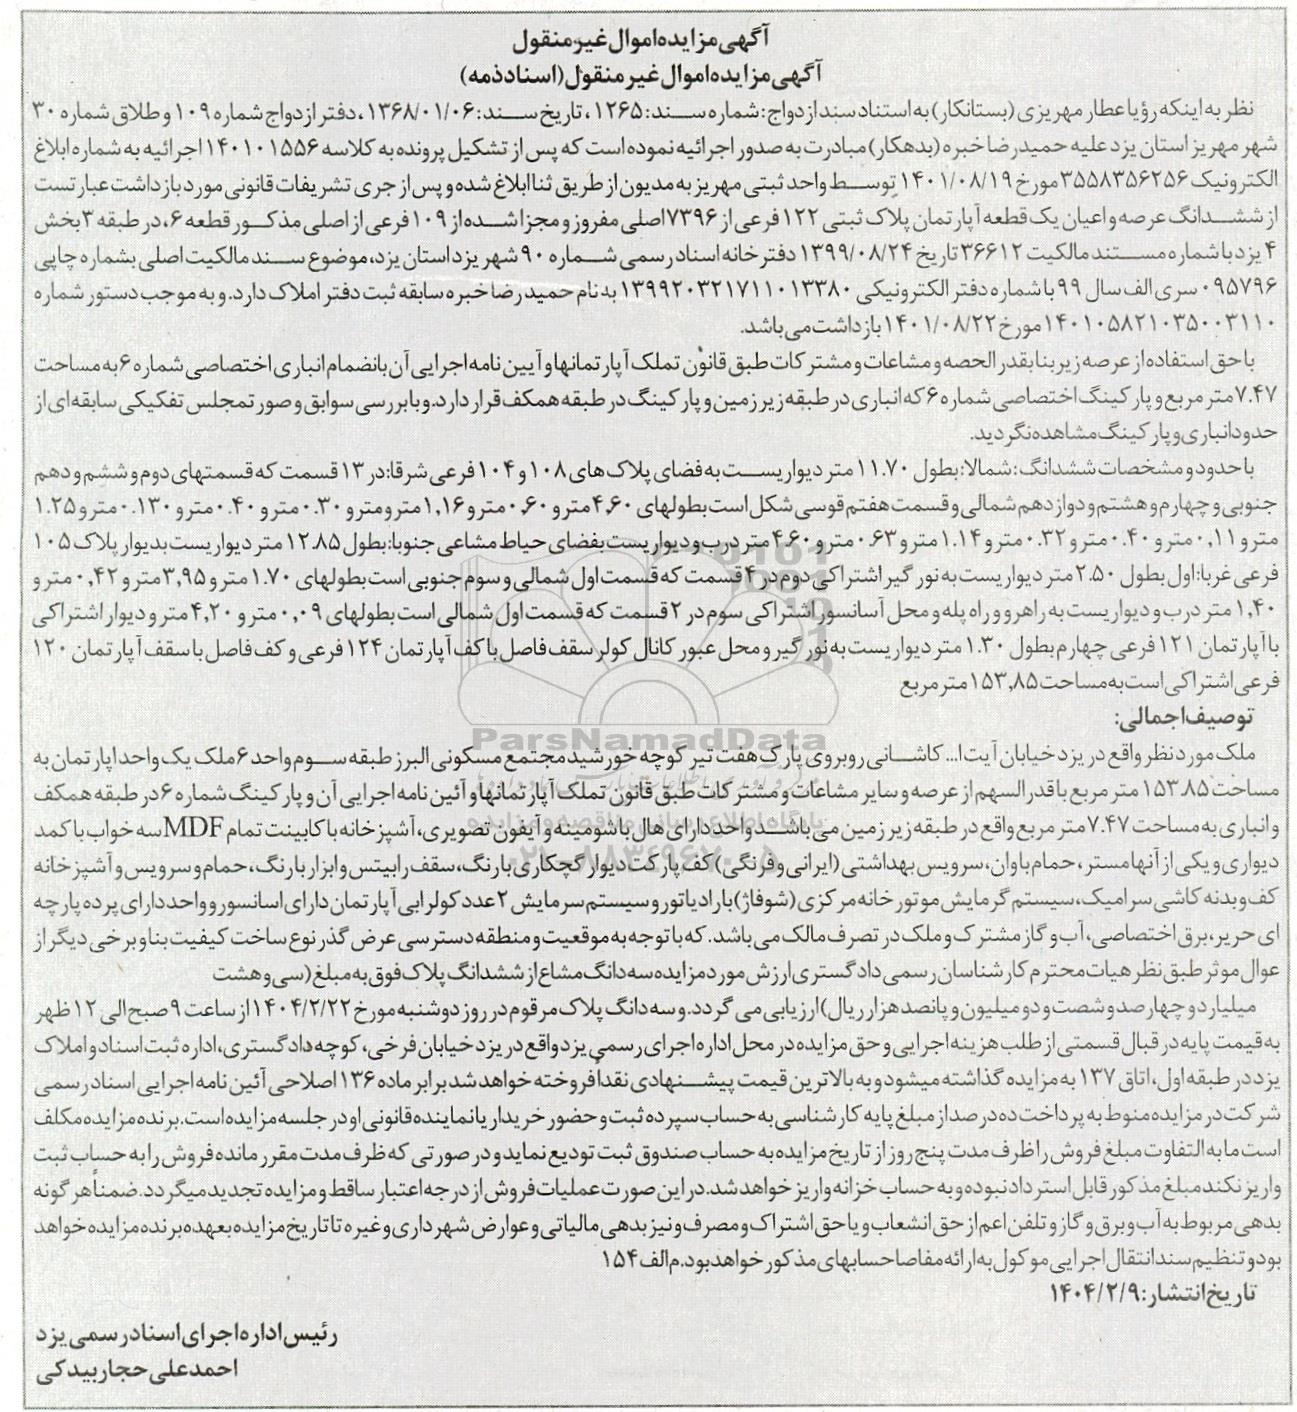 آگهی مزایده اموال غیر منقول
آگهی مزایده اموال غیر منقول (اسناد ذمه)
نظر به اینکه رؤیا عطار مهریزی (بستانکار) به استناد سند ازدواج: شماره سند: ۱۲۶۵ ، تاریخ سند: ۱۳۶۸/۰۱/۰۶ ، دفتر ازدواج شماره ۱۰۹ و طلاق شماره ۳۰
شهر مهریز استان یزد علیه حمیدرضا خبره (بدهکار) مبادرت به صدور اجرائیه نموده است که پس از تشکیل پرونده به کلاسه ۱۴۰۱۰۱۵۵۶ اجرائیه به شماره ابلاغ
الکترونیک ۳۵۵۸۳۵۶۲۵۶ مورخ ۱۴۰۱/۰۸/۱۹ توسط واحد ثبتی مهریز به مدیون از طریق ثنا ابلاغ شده و پس از جری تشریفات قانونی مورد بازداشت عبارتست
از ششدانگ عرصه و اعیان یک قطعه آپارتمان پلاک ثبتی ۱۲۲ فرعی از ۷۳۹۶ اصلی مفروز و مجزا شده از ۱۰۹ فرعی از اصلی مذکور قطعه ۶، در طبقه ۳ بخش
۴ یزد با شماره مستند مالکیت ۳۶۶۱۲ تاریخ ۱۳۹۹/۰۸/۲۴ دفترخانه اسناد رسمی شماره ۹۰ شهر یزد استان یزد، موضوع سند مالکیت اصلی بشماره چاپی
۰۹۵۷۹۶ سری الف سال ۹۹ با شماره دفتر الکترونیکی ۱۳۹۹۲۰۳۲۱۷۱۱۰۱۳۳۸۰ به نام حمیدرضا خبره سابقه ثبت دفتر املاک دارد. و به موجب دستور شماره
۱۴۰۱۰۵۸۲۱۰۳۵۰۰۳۱۱۰ مورخ ۱۴۰۱/۰۸/۲۲ بازداشت می باشد.
با حق استفاده از عرصه زیربنا بقدر الحصه و مشاعات و مشترکات طبق قانون تملک آپارتمانها و آیین نامه اجرایی آن بانضمام انباری اختصاصی شماره ۶ به مساحت
۷.۴۷ متر مربع و پارکینگ اختصاصی شماره ۶ که انباری در طبقه زیرزمین و پارکینگ در طبقه همکف قرار دارد. و با بررسی سوابق و صورتمجلس تفکیکی سابقه ای از
حدود انباری و پارکینگ مشاهده نگردید.
با حدود و مشخصات ششدانگ: شمالا: بطول ۱۱.۷۰ متر دیواریست به فضای پلاک های ۱۰۸ و ۱۰۴ فرعی شرقا: در ۱۳ قسمت که قسمتهای دوم و ششم و دهم
جنوبی و چهارم و هشتم و دوازدهم شمالی و قسمت هفتم قوسی شکل است بطولهای ۴,۶۰ متر و ۰,۶۰ متر و ۱,۱۶ متر و متر و ۰.۳۰ متر و ۰.۴۰ متر و ۰.۱۳۰ متر و ۱.۲۵
متر و ۰,۱۱ متر و ۰.۴۰ متر و ۰.۳۲ متر و ۱.۱۴ متر و ۰.۶۳ متر و ۴.۶۰ متر درب و دیواریست بفضای حیاط مشاعی جنوبا: بطول ۱۲.۸۵ متر دیواریست بدیوار پلاک ۱۰۵
فرعی غربا: اول بطول ۲.۵۰ متر دیواریست به نورگیر اشتراکی دوم در ۴ قسمت که قسمت اول شمالی و سوم جنوبی است بطولهای ۱.۷۰ متر و ۳,۹۵ متر و ۰,۴۲ متر و
۱,۴۰ متر درب و دیواریست به راهرو و راه پله و محل آسانسور اشتراکی سوم در ۲ قسمت که قسمت اول شمالی است بطولهای ۰,۰۹ متر و ۴,۲۰ متر و دیوار اشتراکی
با آپارتمان ۱۲۱ فرعی چهارم بطول ۱.۳۰ متر دیواریست به نورگیر و محل عبور کانال کولر سقف فاصل با کف آپارتمان ۱۲۴ فرعی و کف فاصل با سقف آپارتمان ۱۲۰
فرعی اشتراکی است به مساحت ۱۵۳,۸۵ متر مربع
توصیف اجمالی:
ملک مورد نظر واقع در یزد خیابان آیت ا... کاشانی روبروی پارک هفت تیر کوچه خورشید مجتمع مسکونی البرز طبقه سوم واحد ۶ ملک یک واحد اپارتمان به
مساحت ۱۵۳.۸۵ متر مربع با قدرالسهم از عرصه و سایر مشاعات و مشترکات طبق قانون تملک آپارتمانها و آئین نامه اجرایی آن و پارکینگ شماره ۶ در طبقه همکف
و انباری به مساحت ۷.۴۷ متر مربع واقع در طبقه زیرزمین می باشد واحد دارای هال با شومینه و آیفون تصویری، آشپزخانه با کابینت تمام MDF سه خواب با کمد
دیواری و یکی از آنها مستر، حمام با وان، سرویس بهداشتی (ایرانی و فرنگی) کف پارکت دیوار گچکاری با رنگ، سقف رابیتس و ابزار با رنگ، حمام و سرویس و آشپزخانه
کف و بدنه کاشی سرامیک، سیستم گرمایش موتورخانه مرکزی (شوفاژ) با رادیاتور و سیستم سرمایش ۲ عدد کولر ابی آپارتمان دارای اسانسور و واحد دارای پرده پارچه
ای حریر، برق اختصاصی، آب و گاز مشترک و ملک در تصرف مالک می باشد. که با توجه به موقعیت و منطقه دسترسی عرض گذر نوع ساخت کیفیت بنا و برخی دیگر از
عوال موثر طبق نظر هیات محترم کارشناسان رسمی دادگستری ارزش مورد مزایده سه دانگ مشاع از ششدانگ پلاک فوق به مبلغ (سی و هشت
میلیارد و چهارصد و شصت و دو میلیون و پانصد هزار ریال) ارزیابی می گردد. و سه دانگ پلاک مرقوم در روز دوشنبه مورخ ۱۴۰۴/۲/۲۲ از ساعت ۹ صبح الی ۱۲ ظهر
به قیمت پایه در قبال قسمتی از طلب هزینه اجرایی و حق مزایده در محل اداره اجرای رسمی یزد واقع در یزد خیابان فرخی، کوچه دادگستری، اداره ثبت اسناد و املاک
یزد در طبقه اول، اتاق ۱۳۷ به مزایده گذاشته میشود و به بالاترین قیمت پیشنهادی نقداً فروخته خواهد شد برابر ماده ۱۳۶ اصلاحی آئین نامه اجرایی اسناد رسمی
شرکت در مزایده منوط به پرداخت ده درصد از مبلغ پایه کارشناسی به حساب سپرده ثبت و حضور خریدار یا نماینده قانونی او در جلسه مزایده است. برنده مزایده مکلف
است مابه التفاوت مبلغ فروش را ظرف مدت پنج روز از تاریخ مزایده به حساب صندوق ثبت تودیع نماید و در صورتی که ظرف مدت مقرر مانده فروش را به حساب ثبت
واریز نکند مبلغ مذکور قابل استرداد نبوده و به حساب خزانه واریز خواهد شد. در این صورت عملیات فروش از درجه اعتبار ساقط و مزایده تجدید میگردد. ضمناً هر گونه
بدهی مربوط به آب و برق و گاز و تلفن اعم از حق انشعاب و یا حق اشتراک و مصرف و نیز بدهی مالیاتی و عوارض شهرداری و غیره تا تاریخ مزایده بعهده برنده مزایده خواهد
بود و تنظیم سند انتقال اجرایی موکول به ارائه مفاصا حسابهای مذکور خواهد بود. م الف ۱۵۴
تاریخ انتشار: ۱۴۰۴/۲/۹
رئیس اداره اجرای اسناد رسمی یزد
احمد علی حجار بیدکی
ParsNamadData